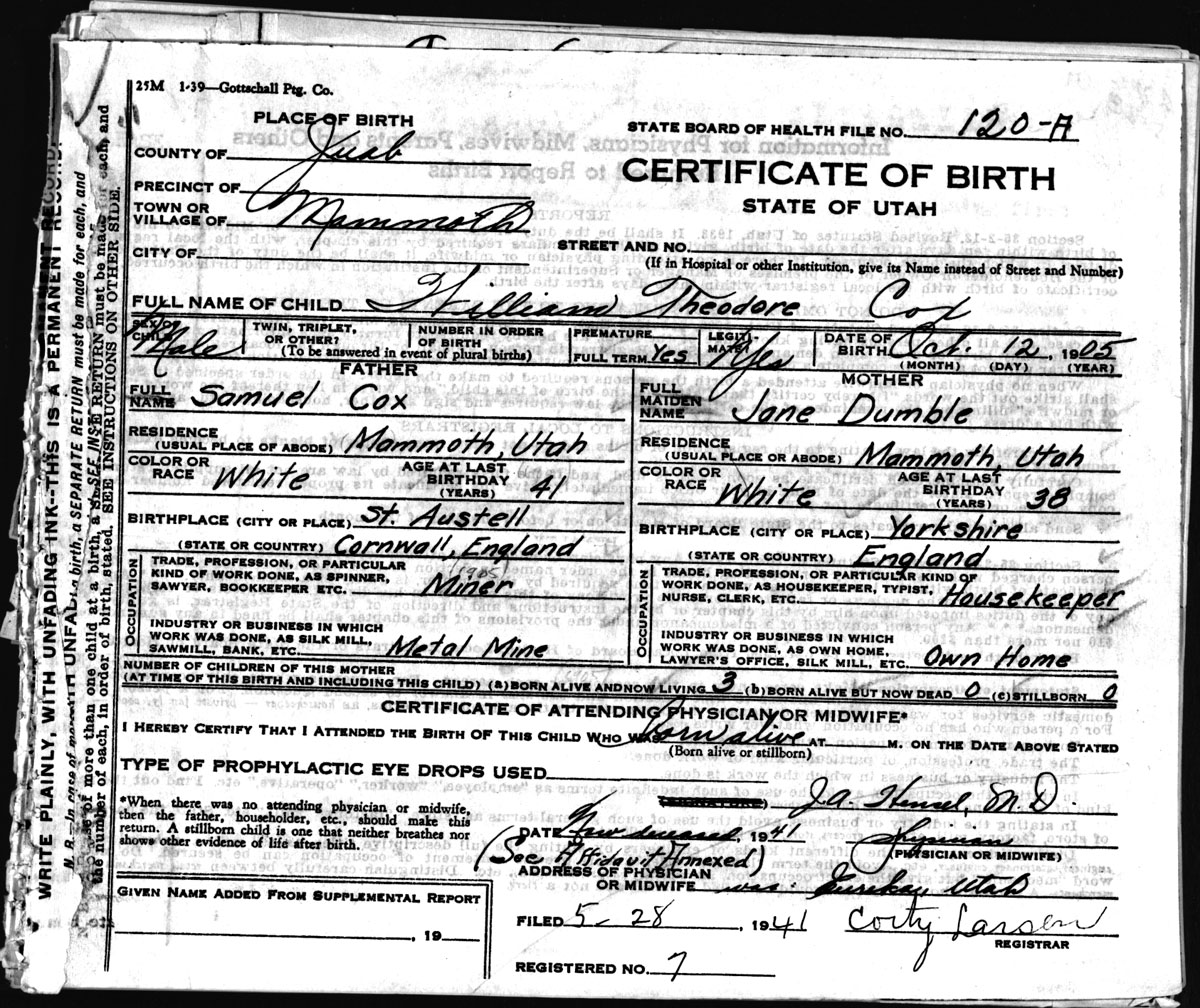 25M 1-39—Gottschall Ptg. Co.
PLACE OF BIRTH
STATE BOARD OF HEALTH FILE NO. 120-A
COUNTY OF Juab
CERTIFICATE OF BIRTH
STATE OF UTAH
PRECINCT OF
TOWN OR
VILLAGE OF Mammoth
STREET AND NO.
(If in Hospital or other Institution, give its Name instead of Street and Number)
CITY OF
FULL NAME OF CHILD William Theodore Cox
SEX OF CHILD Male
TWIN, TRIPLET, OR OTHER?
NUMBER IN ORDER OF BIRTH
(To be answered in event of plural births)
PREMATURE
FULL TERM Yes
LEGITI-
MATE? Yes
DATE OF BIRTH Oct. 12, 1905
(MONTH) (DAY) (YEAR)
FATHER
FULL NAME Samuel Cox
RESIDENCE
(USUAL PLACE OF ABODE) Mammoth, Utah
COLOR OR RACE White
AGE AT LAST BIRTHDAY 41
(YEARS)
BIRTHPLACE (CITY OR PLACE) St. Austell
(STATE OR COUNTRY) Cornwall, England
OCCUPATION
TRADE, PROFESSION, OR PARTICULAR
KIND OF WORK DONE, AS SPINNER,
SAWYER, BOOKKEEPER ETC. Miner
INDUSTRY OR BUSINESS IN WHICH
WORK WAS DONE, AS SILK MILL,
SAWMILL, BANK, ETC. Metal Mine
MOTHER
FULL MAIDEN NAME Jane Dumble
RESIDENCE
(USUAL PLACE OR ABODE) Mammoth, Utah
COLOR OR RACE White
AGE AT LAST BIRTHDAY 38
(YEARS)
BIRTHPLACE (CITY OR PLACE) Yorkshire
(STATE OR COUNTRY) England
OCCUPATION
TRADE, PROFESSION, OR PARTICULAR KIND OF
WORK DONE, AS HOUSEKEEPER, TYPIST,
NURSE, CLERK, ETC. Housekeeper
INDUSTRY OR BUSINESS IN WHICH
WORK WAS DONE, AS OWN HOME,
LAWYER'S OFFICE, SILK MILL, ETC. Own Home
NUMBER OF CHILDREN OF THIS MOTHER
(AT TIME OF THIS BIRTH AND INCLUDING THIS CHILD) (a) BORN ALIVE AND NOW LIVING 3 (b) BORN ALIVE BUT NOW DEAD 0 (c) STILLBORN 0
CERTIFICATE OF ATTENDING PHYSICIAN OR MIDWIFE*
I HEREBY CERTIFY THAT I ATTENDED THE BIRTH OF THIS CHILD WHO WAS Born alive AT M. ON THE DATE ABOVE STATED
(Born alive or stillborn)
TYPE OF PROPHYLACTIC EYE DROPS USED
*When there was no attending physician or midwife,
then the father, householder, etc., should make this
return. A stillborn child is one that neither breathes nor
shows other evidence of life after birth.
(SIGNATURE) J.A. Hensel M.D.
DATE Now deceased 1941
(PHYSICIAN OR MIDWIFE)
(See Affidavit Annexed)
ADDRESS OF PHYSICIAN
OR MIDWIFE was: Eureka, Utah
GIVEN NAME ADDED FROM SUPPLEMENTAL REPORT
, 19
FILED 5-28, 1941 Larsen
REGISTRAR
REGISTERED NO. 7
WRITE PLAINLY, WITH UNFADING INK--THIS IS A PERMANENT RECORD.
a SEPARATE RETURN must be made for each, and
the number of each, in order of birth, stated. SEE INSTRUCTIONS ON OTHER SIDE.